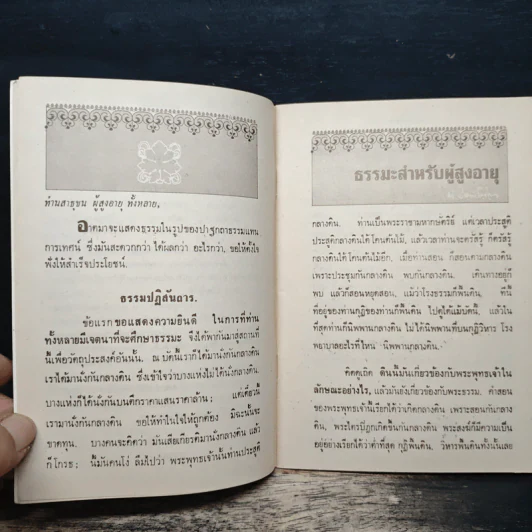 ท่านสาธุชน ผู้สูงอายุ ทั้งหลาย,
อาตมาจะแสดงธรรมในรูปของปาฐกถาธรรมแทน
การเทศน์ ซึ่งมันสะดวกกว่า ได้ผลกว่า อะไรกว่า, ขอให้ตั้งใจ
ฟังให้สำเร็จประโยชน์.
ธรรมปฏิสันถาร.
ข้อแรกขอแสดงความยินดี ในการที่ท่าน
ทั้งหลายมีเจตนาที่จะศึกษาธรรมะ จึงได้พากันมาสู่สถานที่
นี้เพื่อวัตถุประสงค์อันนั้น. ณ บัดนี้เราก็ได้มานั่งกันกลางดิน
เราได้มานั่งกันกลางดิน, ซึ่งเข้าใจว่าบางแห่งไม่ได้นั่งกลางดิน.
บางแห่งก็ได้นั่งกันบนตึกราคาแสนราคาล้าน; แต่เดี๋ยวนี้
เรามานั่งกันกลางดิน ขอให้ทำในใจให้ถูกต้อง มิฉะนั้นจะ
ขาดทุน. บางคนจะคิดว่า มันเสียเกียรติมานั่งกลางดิน แล้ว
ก็โกรธ; นี้มันคนโง่ ลืมไปว่า พระพุทธเจ้านั้นท่านประสูติ
ธรรมะสำหรับผู้สูงอายุ
กลางดิน. ท่านเป็นพระราชามหากษัตริย์ แต่เวลาประสูติ
ประสูติกลางดินใต้โคนต้นไม้, แล้วเวลาท่านจะตรัสรู้ ก็ตรัสรู้
กลางดินใต้โคนต้นไม้อีก. เมื่อท่านสอน ก็สอนตามกลางดิน
เพราะประชุมกันกลางดิน พบกันกลางดิน. เดินทางอยู่ก็
พบ แล้วก็สอนหยุดสอน, แม้ว่าโรงธรรมก็พื้นดิน. ที่นี้
ที่อยู่ของท่านกุฏิของท่านก็พื้นดิน ไปดูได้แม้บัดนี้. แล้วใน
ที่สุดท่านก็นิพพานกลางดิน ไม่ได้นิพพานที่บนกุฏิวิหาร โรง
พยาบาลอะไรที่ไหน นิพพานกลางดิน.
คิดดูเถิด ดินนี้มันเกี่ยวข้องกับพระพุทธเจ้าใน
ลักษณะอย่างไร, แล้วมันยังเกี่ยวข้องกับพระธรรม. คำสอน
ของพระพุทธเจ้านี้เรียกก็ได้ว่าเกิดกลางดิน เพราะสอนกันกลาง
ดิน, พระไตรปิฎกเกิดขึ้นกันกลางดิน. พระสงฆ์ก็มีความเป็น
อยู่อย่างเรียกได้ว่าต่ำที่สุด กุฏิพื้นดิน, วิหารพื้นดินทั้งนั้นเลย